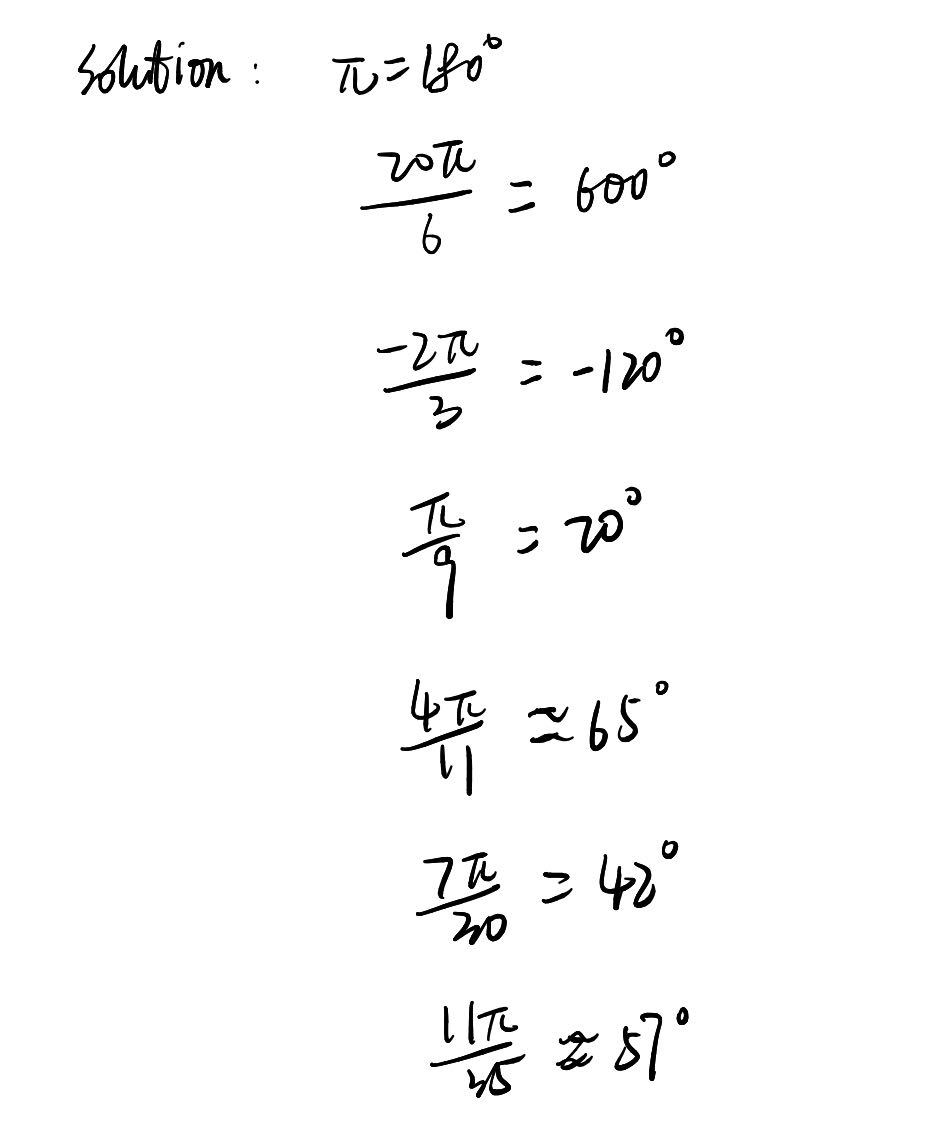 Solution: π=180°
20π/6 = 600°
-2π/3 = -120°
π/9 = 20°
4π/11 ≈ 65°
7π/30 = 42°
11π/35 ≈ 57°